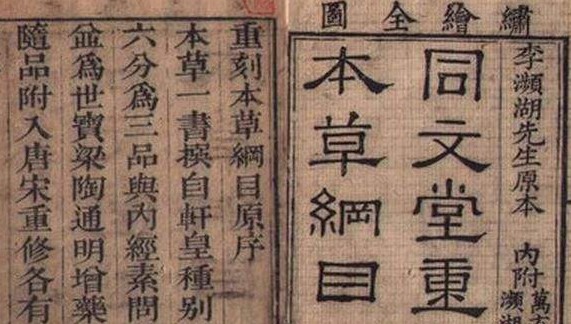 繡繪全圖
李瀕湖先生原本
內附
萬
瀕湖
同文堂重
本草綱目
重刻本草綱目原序
本草一書撰自軒皇種別
六分爲三品與內經素問
並爲世寶梁陶通明增藥
隨品附入唐宋重修各有